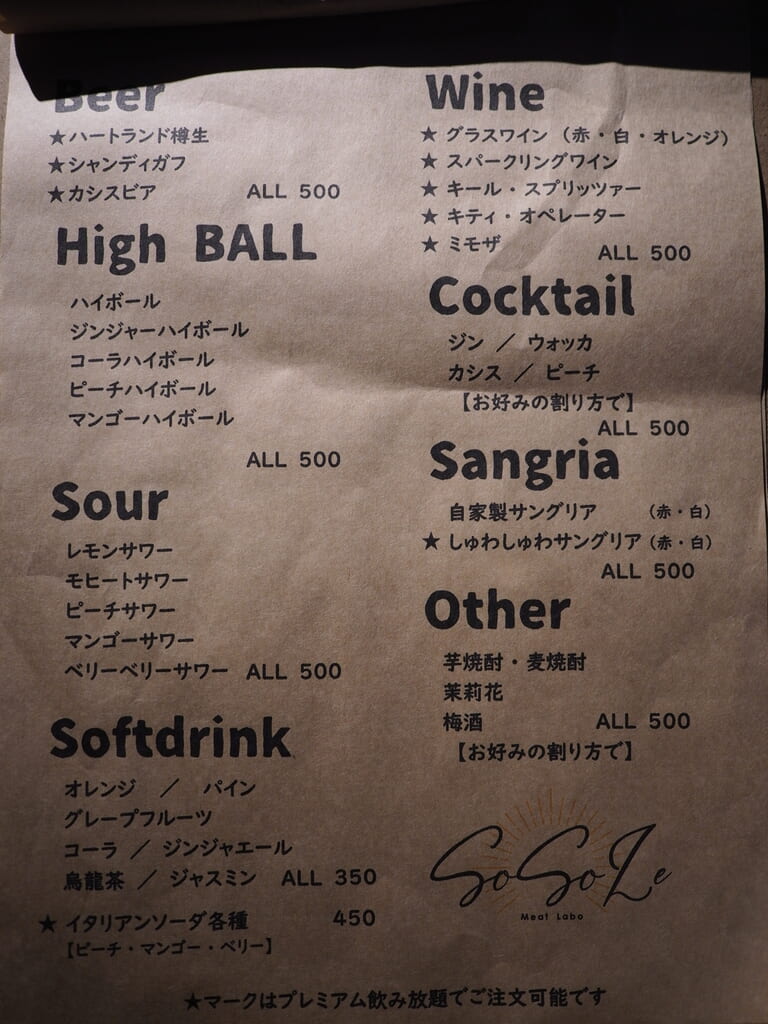 Beer
★ハートランド樽生
★シャンディガフ
★カシスビア ALL 500
High BALL
ハイボール
ジンジャーハイボール
コーラハイボール
ピーチハイボール
マンゴーハイボール
ALL 500
Sour
レモンサワー
モヒートサワー
ピーチサワー
マンゴーサワー
ベリーベリーサワー ALL 500
Softdrink
オレンジ ／ パイン
グレープフルーツ
コーラ ／ ジンジャエール
烏龍茶 ／ ジャスミン ALL 350
★ イタリアンソーダ各種 450
【ピーチ・マンゴー・ベリー】
Wine
★ グラスワイン （赤・白・オレンジ）
★ スパークリングワイン
★ キール・スプリッツァー
★ キティ・オペレーター
★ ミモザ
ALL 500
Cocktail
ジン ／ ウォッカ
カシス ／ ピーチ
【お好みの割り方で】
ALL 500
Sangria
自家製サングリア （赤・白）
★ しゅわしゅわサングリア（赤・白）
ALL 500
Other
芋焼酎・麦焼酎
茉莉花
梅酒 ALL 500
【お好みの割り方で】
SoSoLe
Meat Labo
★マークはプレミアム飲み放題でご注文可能です